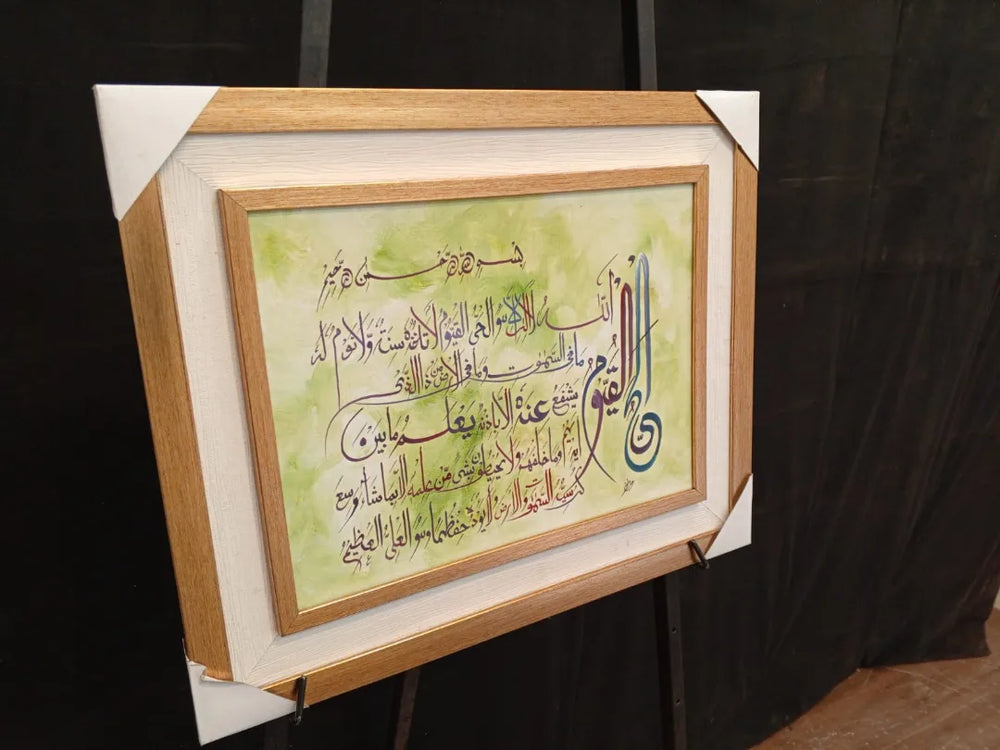 بسم الله الرحمن الرحيم
الله لا إله إلا هو الحي القيوم لا تأخذه سنة ولا نوم له
ما في السموت وما في الارض من ذا الذي
يشفع عنده الا باذنه يعلم ما بين
ايديهم وما خلفهم ولا يحيطون بشئ من علمه الا بما شاء وسع
كرسيه السموت والارض ولا يوده حفظهما وهو العلي العظيم
الحي القيوم